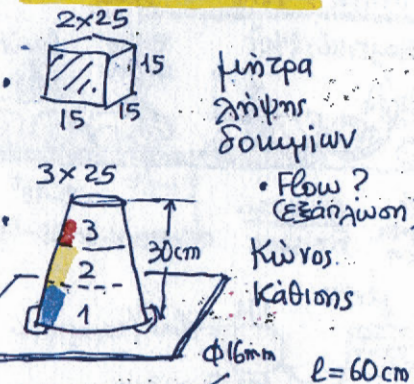 2×25
15
15
15
μήτρα
λήψης
δοκιμίων
3×25
3
2
1
30cm
• Flow ?
(εξάπλωση)
Κώνος
Κάθισης
Φ16mm
l=60cm